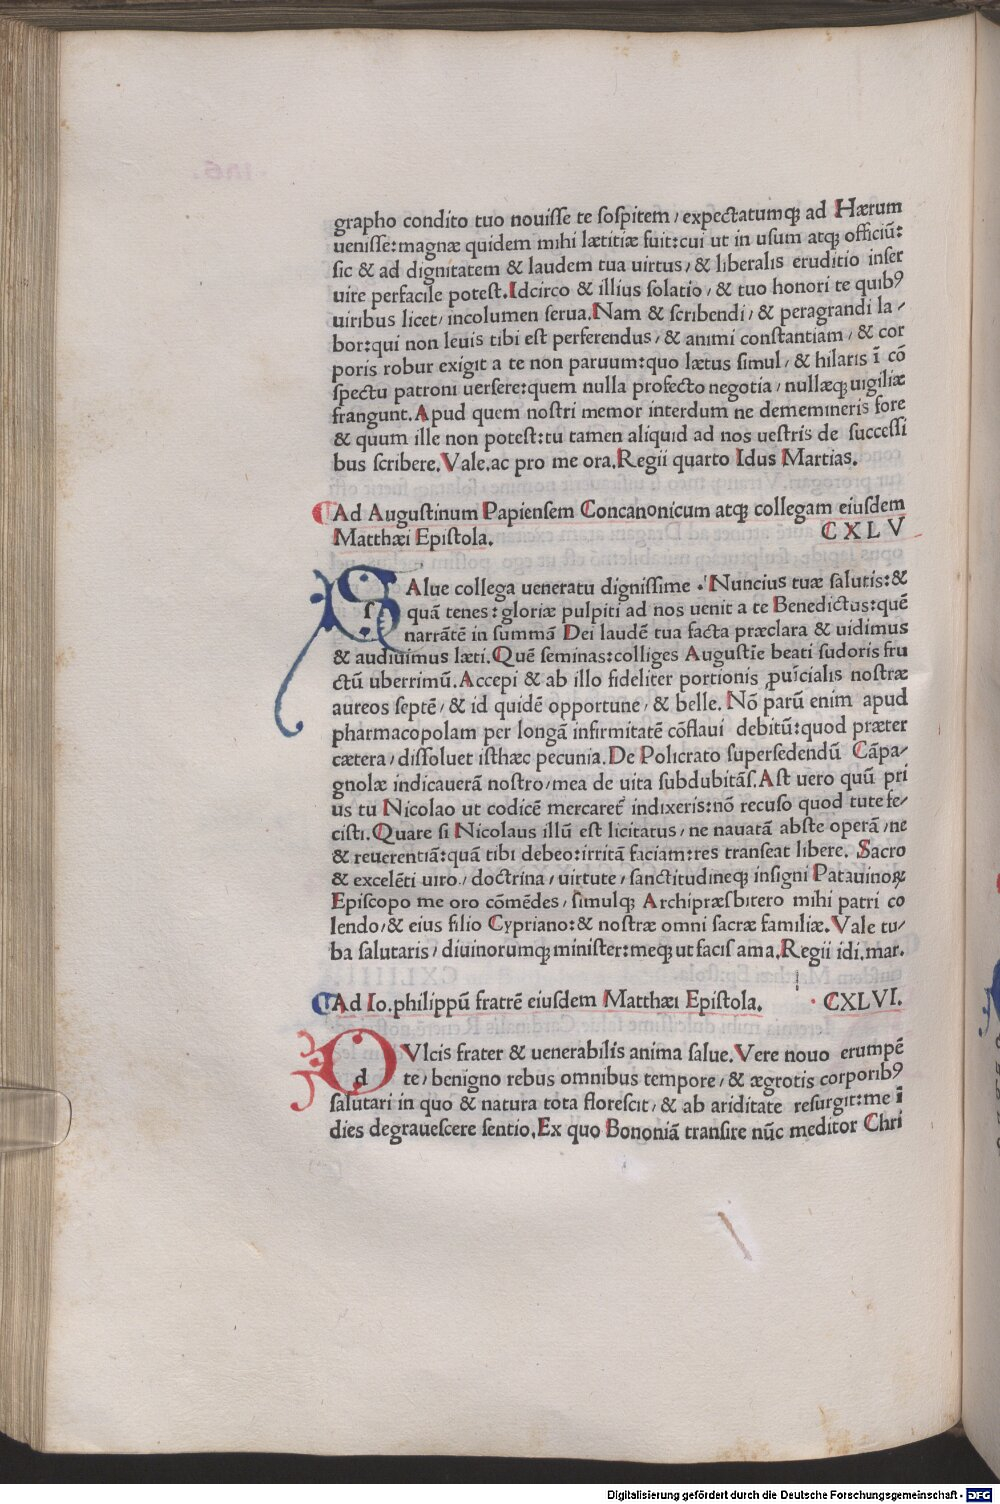 grapho condito tuo nouisse te sospitem / expectatumqꝫ ad Hærum
uenisse: magnæ quidem mihi lætitiæ fuit: cui ut in usum atqꝫ officiū:
sic & ad dignitatem & laudem tua uirtus / & liberalis eruditio inser
uire perfacile potest. Idcirco & illius solatio / & tuo honori te quibꝰ
uiribus licet / incolumen serua. Nam & scribendi / & peragrandi la/
bor: qui non leuis tibi est perferendus / & animi constantiam / & cor
poris robur exigit a te non paruum: quo lætus simul / & hilaris ī cō
spectu patroni uersere: quem nulla profecto negotia / nullæqꝫ uigiliæ
frangunt. Apud quem nostri memor interdum ne dememineris fore
& quum ille non potest: tu tamen aliquid ad nos uestris de successi
bus scribere. Vale. ac pro me ora. Regii quarto Idus Martias.
Ad Augustinum Papiensem Concanonicum atqꝫ collegam eiusdem
Matthæi Epistola. CXLV
SAlue collega ueneratu dignissime. Nuncius tuæ salutis: &
quā tenes: gloriæ pulpiti ad nos uenit a te Benedictus: quē
narrātē in summā Dei laudē tua facta præclara & uidimus
& audiuimus læti. Quē seminas: colliges Augustīe beati sudoris fru
ctū uberrimū. Accepi & ab illo fideliter portionis ꝓuīcialis nostræ
aureos septē / & id quidē opportune / & belle. Nō parū enim apud
pharmacopolam per longā infirmitatē cōflaui debitū: quod præter
cætera / dissoluet isthæc pecunia. De Policrato supersedendū Cāpa/
gnolæ indicauerā nostro / mea de uita subdubitās. Ast uero quū pri
us tu Nicolao ut codicē mercaret᷑ indixeris: nō recuso quod tute fe/
cisti. Quare si Nicolaus illū est licitatus / ne nauatā abste operā / ne
& reuerentiā: quā tibi debeo: irritā faciam: res transeat libere. Sacro
& excelēti uiro / doctrina / uirtute / sanctitudineqꝫ insigni Patauinoꝝ
Episcopo me oro cōmēdes / simulqꝫ Archipræsbitero mihi patri co
lendo / & eius filio Cypriano: & nostræ omni sacræ familiæ. Vale tu/
ba salutaris / diuinorumqꝫ minister: meqꝫ ut facis ama. Regii idi. mar.
Ad Io. philippū fratrē eiusdem Matthæi Epistola. CXLVI.
DVlcis frater & uenerabilis anima salue. Vere nouo erumpē
te / benigno rebus omnibus tempore / & ægrotis corporibꝰ
salutari in quo & natura tota florescit / & ab ariditate resurgit: me ī
dies degrauescere sentio. Ex quo Bononiā transire nūc meditor Chri
Digitalisierung gefördert durch die Deutsche Forschungsgemeinschaft - DFG